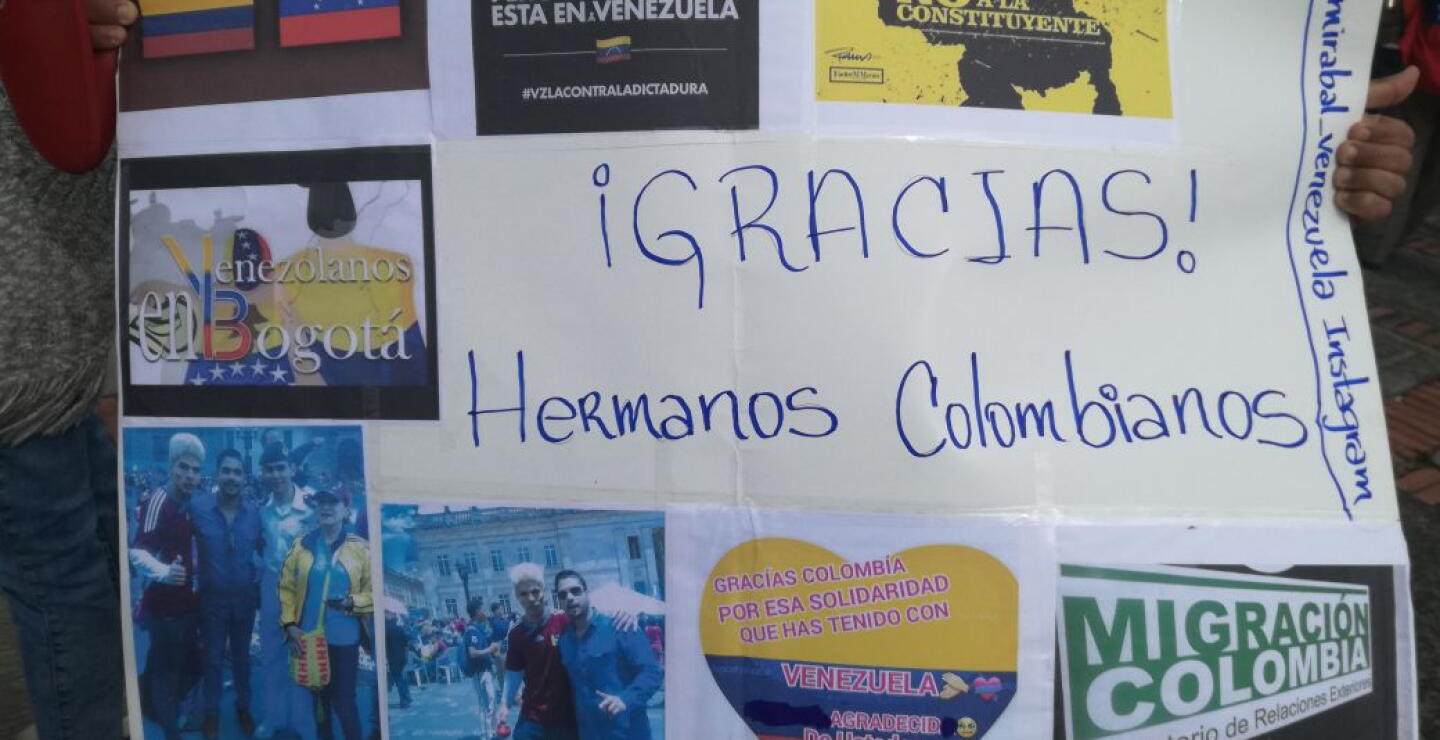 ESTA EN VENEZUELA
#VZLACONTRALADICTADURA
NO A LA
CONSTITUYENTE
Venezolanos
en Bogotá
¡GRACIAS!
Hermanos Colombianos
mirabal_venezuela Instagram
GRACÍAS COLOMBÍA
POR ESA SOLIDARIDAD
QUE HAS TENIDO CON
VENEZUELA
AGRADECID
MIGRACIÓN
COLOMBIA
de Relaciones Exteriores